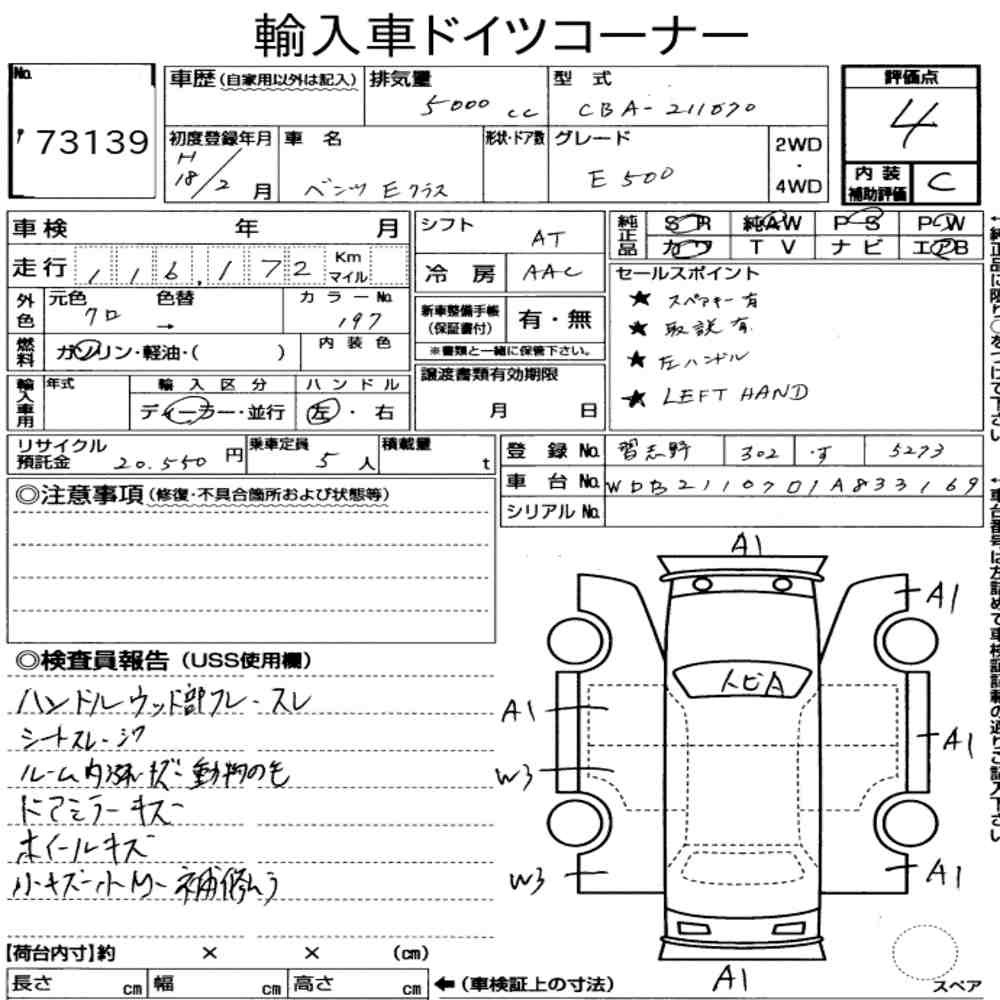 輸入車ドイツコーナー
No. 73139
車歴(自家用以外は記入) 排気量 5000 cc 型式 CBA-211070 評価点 4
初度登録年月 H18/2月 車名 ベンツ Eクラス 形状・ドア数 グレード E500 2WD・4WD 内装補助評価 C
車検 年 月 シフト AT 純正品 SR 純AW PS PW
カワ TV ナビ エアB
走行 116,172 Km マイル 冷房 AAC
セールスポイント
外色 元色 クロ 色替 → カラーNo. 197 新車整備手帳(保証書付) 有・無
★ スペアキー有
★ 取説有
★ 左ハンドル
★ LEFT HAND
燃料 ガソリン・軽油・( ) 内装色 ※書類と一緒に保管下さい。
輸入車用 年式 輸入区分 ハンドル 譲渡書類有効期限
ディーラー・並行 左・右 月 日
リサイクル預託金 20.550円 乗車定員 5人 積載量 t
登録No. 習志野 302 す 5273
車台No. WDB2110701A833169
シリアルNo.
◎注意事項(修復・不具合箇所および状態等)
◎検査員報告(USS使用欄)
ハンドルウッド部フレースレ
シートスレーシワ
ルーム内汚れキズー動物の毛
ドアミラーキズ
ホイールキズ
補修ムラ
A1
A1
トビA
A1
A1
W3
W3
A1
A1
スペア
【荷台内寸】約 × × (cm)
長さ cm 幅 cm 高さ cm ←(車検証上の寸法)